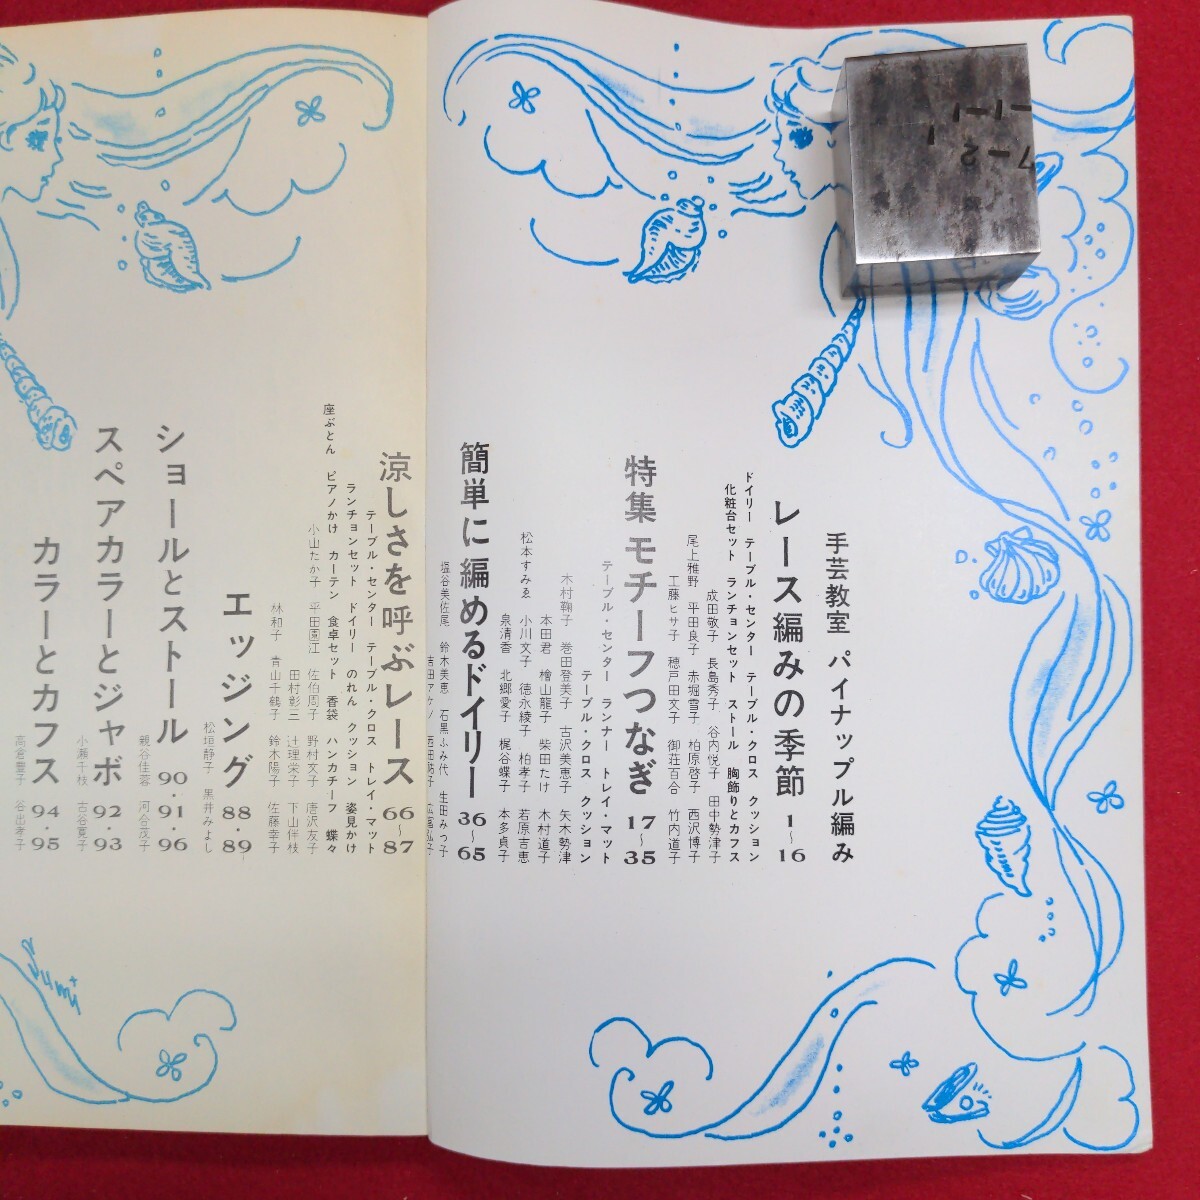 手芸教室 パイナップル編み
レース編みの季節 1〜16
ドイリー テーブル・センター テーブル・クロス クッション
化粧台セット ランチョンセット ストール 胸飾りとカフス
成田敬子 長島秀子 谷内悦子 田中勢津子
尾上雅野 平田良子 赤堀雪子 柏原啓子 西沢博子
工藤ヒサ子 穂戸田文子 御荘百合 竹内道子
特集 モチーフつなぎ 17〜35
テーブル・センター ランナー トレイ・マット
テーブル・クロス クッション
木村鞠子 巻田登美子 古沢美恵子 矢木勢津
本田君 檜山龍子 柴田たけ 木村道子
松本すみゑ 小川文子 徳永綾子 柏孝子 若原吉恵
泉清香 北郷愛子 梶谷蝶子 本多貞子
簡単に編めるドイリー 36〜65
塩谷美佐尾 鈴木美恵 石黒ふみ代 生田みつ子
涼しさを呼ぶレース 66〜87
テーブル・センター テーブル・クロス トレイ・マット
ランチョンセット ドイリー のれん クッション 姿見かけ
座ぶとん ピアノかけ カーテン 食卓セット 香袋 ハンカチーフ 蝶々
小山たか子 平田園江 佐伯周子 野村文子 唐沢友子
田村彰三 辻理栄子 下山伴枝
林和子 青山千鶴子 鈴木陽子 佐藤幸子
エッジング 88・89
松垣静子 黒井みよし
ショールとストール 90・91・96
親谷佳蓉 河合茂子
スペアカラーとジャボ 92・93
小瀬千枝 古谷寛子
カラーとカフス 94・95
高倉豊子 谷出孝子
7-2
1